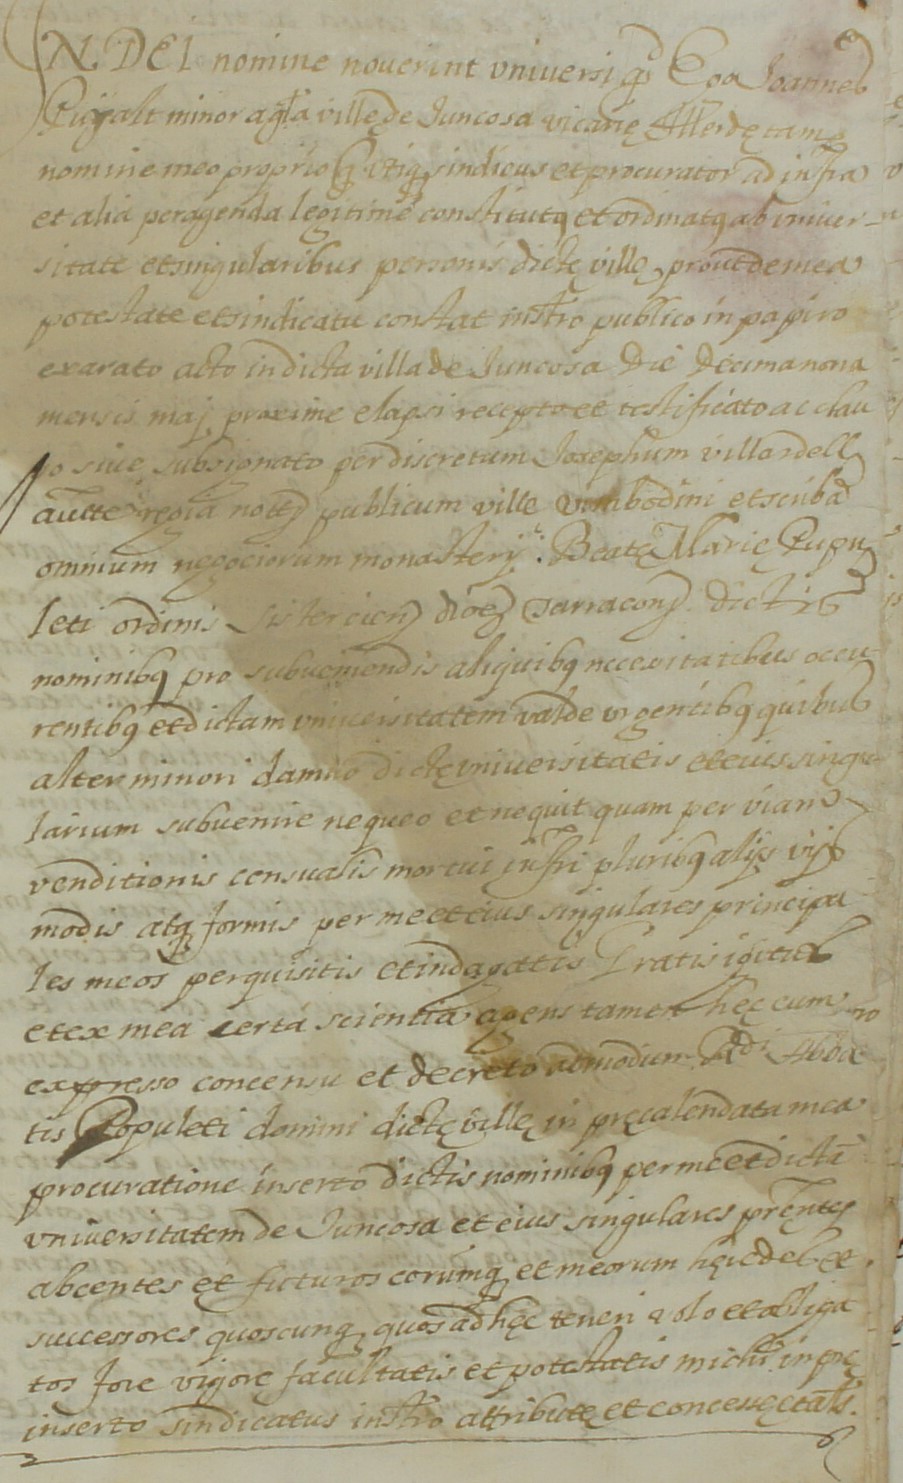 IN DEI nomine noverint vniversi qđ Ego Joannes
Puigalt minor agla ville de Juncosa vicarie Illerde tamq
nomine meo proprio qđ vtiqz sindicus et procurator ad infra
et alia peragenda legitime constitutq et ordinatq ab vniver-
sitate et singularibus personis dicte ville, prout de mea
potestate et sindicatu constat instro publico in papiro
exarato acto in dicta villa de Juncosa die decima nona
mensis maj proxime elapsi recepto et testificato ac clau
so sive subsignato per discretum Josephum villardell
auctte regia nott publicum ville Vimbodini et scribā
omnium negociorum monasterij Beate Marie Pupu
leti ordinis Sistercien dioe Tarracon dictis
nominibq pro subveniendis aliquibq necesitatibus occu
rentibq et dictam vniversitatem valde vrgentibq quibus
alter minori damno dicte vniversitatis et eius singu
larium subvenire nequeo et nequit quam per viam
venditionis censualis mortui infri pluribq alijs vijs
modis atqz formis per me et eius singulares principa
les meos perquisitis et indagatis Gratis igitur
et ex mea certa scientia agens tamen hec cum
expresso concensu et decreto admodum Rdi Abba
tis Populeti domini dicte ville in precalendata mea
procuratione inserto dictis nominibq per me et dictā
vniversitatem de Juncosa et eius singulares prntes
abcentes et futuros eorumqz et meorum heredes et
successores quoscunqz quos ad hec teneri volo et obliga
tos fore vigore facultatis et potestatis michi in pre
inserto sindicatus instro attribute et concesse